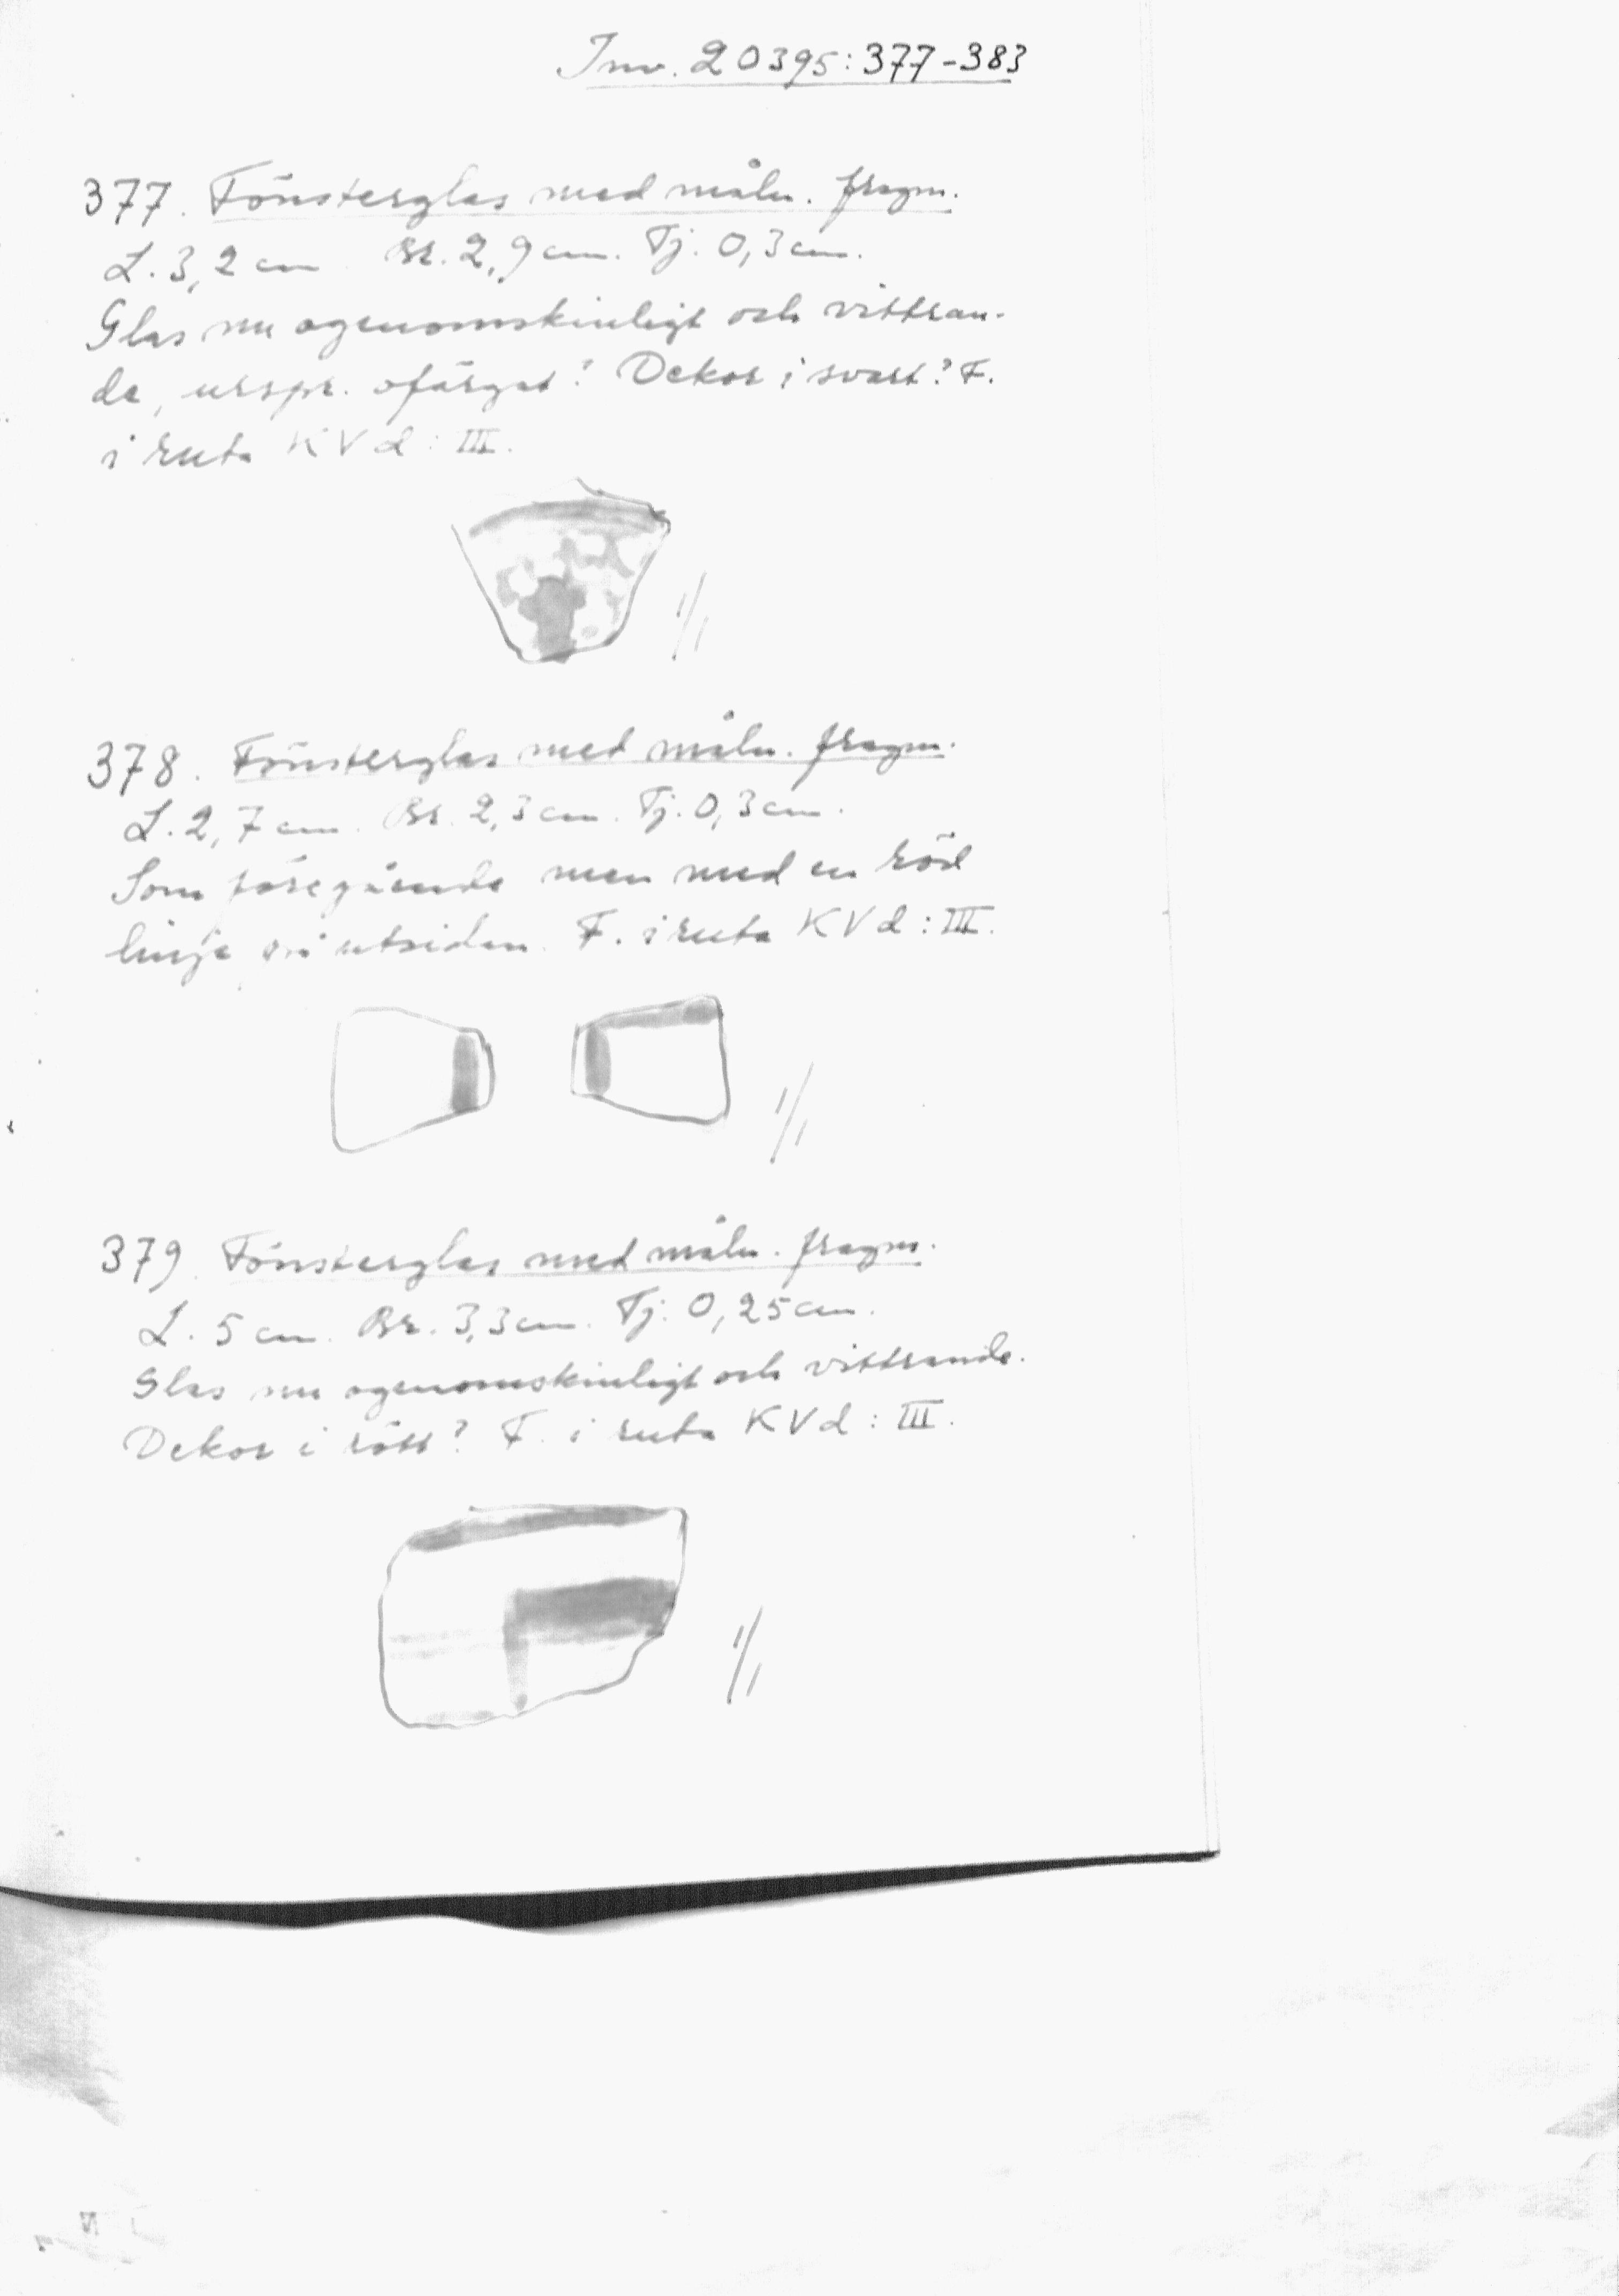 Inv. 20395:377-383
377. Fönsterglas med måln. fragm.
L. 3,2 cm Br. 2,9 cm. Tj. 0,3 cm.
Glas nu ogenomskinligt och vittran-
de, urspr. ofärgat? Dekor i svart? F.
i ruta KVd: III.
1/1
378. Fönsterglas med måln. fragm.
L. 2,7 cm. Br. 2,3 cm. Tj. 0,3 cm.
Som föregående men med en röd
linje på utsidan. F. i ruta KVd: III.
1/1
379. Fönsterglas med måln. fragm.
L. 5 cm. Br. 3,3 cm. Tj. 0,25 cm.
Glas nu ogenomskinligt och vittrande.
Dekor i rött? F. i ruta KVd: III.
1/1